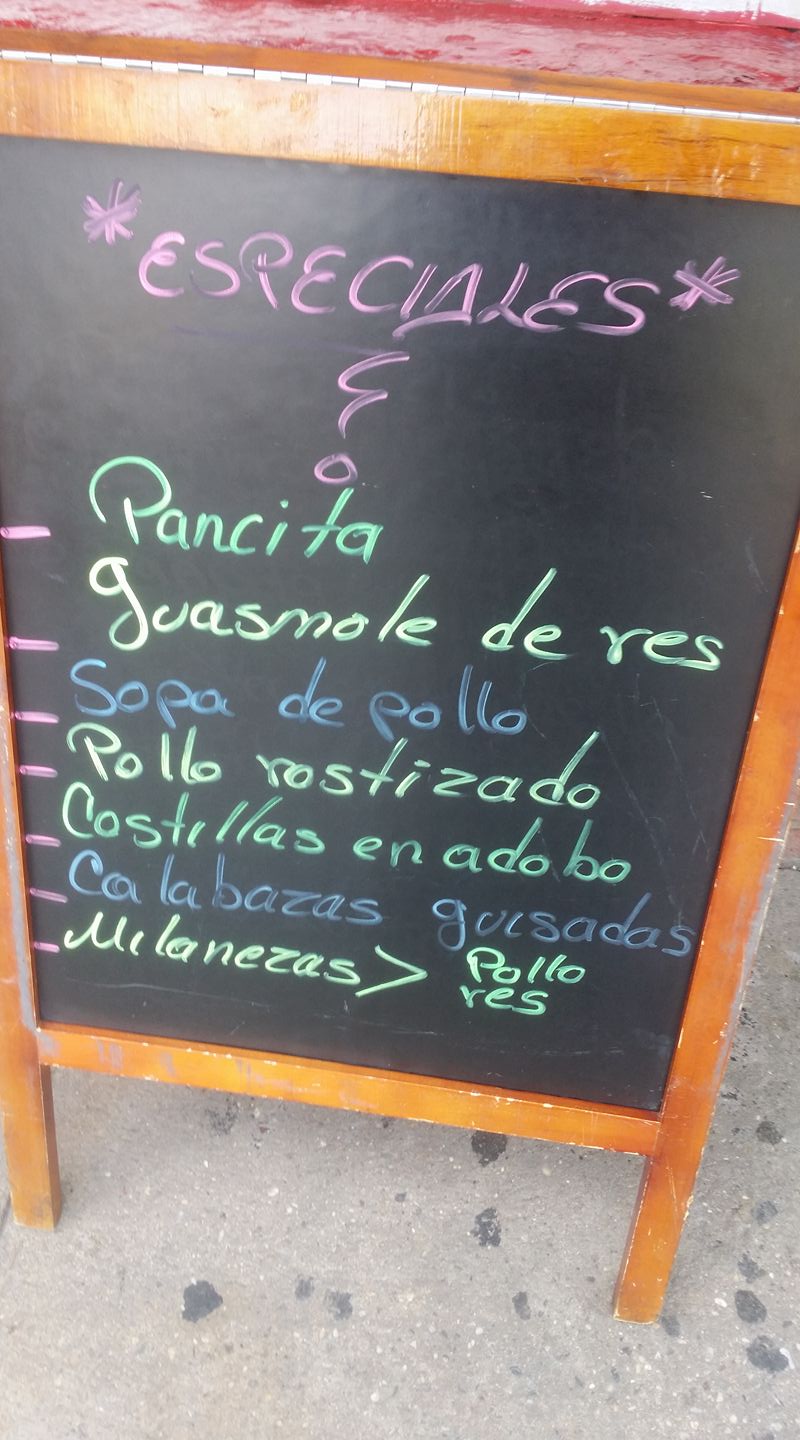 *ESPECIALES*
Pancita
guasmole de res
Sopa de pollo
Pollo rostizado
Costillas en adobo
Calabazas guisadas
Milanezas > Pollo
res